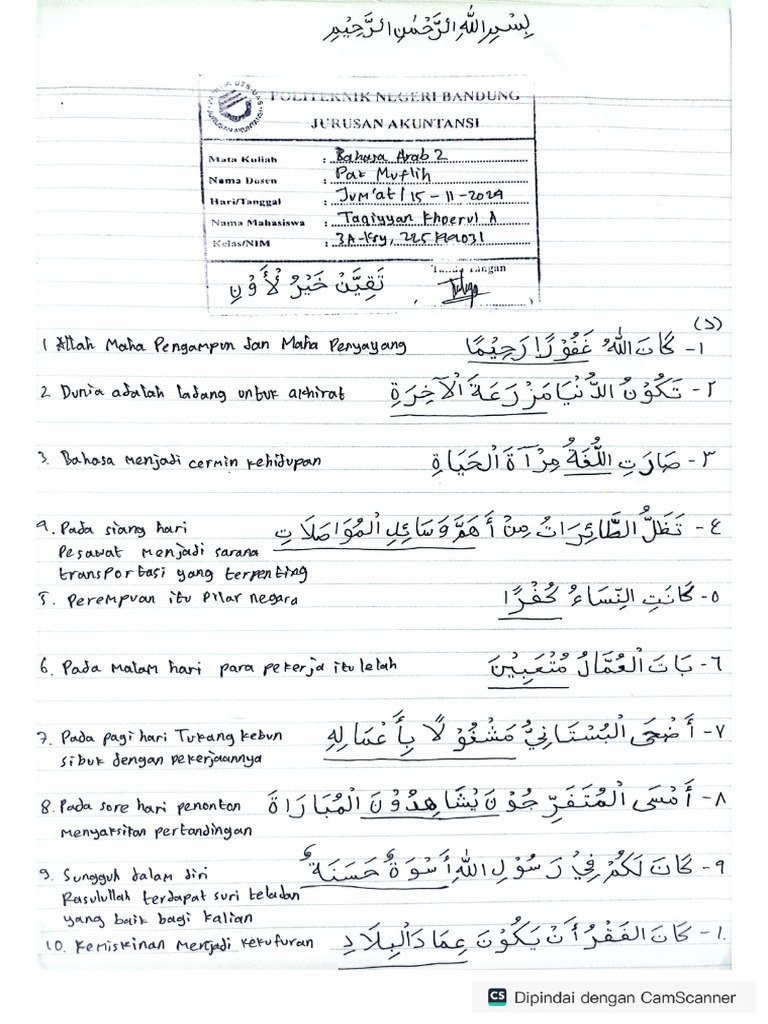 بِسْمِ اللهِ الرَّحْمٰنِ الرَّحِيْمِ
POLITEKNIK NEGERI BANDUNG
JURUSAN AKUNTANSI
Mata Kuliah : Bahasa Arab 2
Nama Dosen : Pak Muflih
Hari/Tanggal : Jum'at / 15 - 11 - 2024
Nama Mahasiswa : Taqiyyan Khoerul A
Kelas/NIM : 3A-Ksy,
Tanda Tangan
تَقِيَّنْ خَيْرُ لْأَوْنِ
(د)
1 Allah Maha Pengampun dan Maha Penyayang ١- كَانَ اللهُ غَفُوْرًا رَحِيْمًا
2 Dunia adalah ladang untuk akhirat ٢- تَكُوْنُ الدُّنْيَا مَزْرَعَةَ الْآخِرَةِ
3. Bahasa menjadi cermin kehidupan ٣- صَارَتِ اللُّغَةُ مِرْآةَ الْحَيَاةِ
4. Pada siang hari ٤- تَظَلُّ الطَّائِرَاتُ مِنْ أَهَمَّ وَسَائِلِ الْمُوَاصَلَاتِ
Pesawat menjadi sarana
transportasi yang terpenting
5. Perempuan itu pilar negara ٥- كَانَتِ النِّسَاءُ كُفْرًا
6. Pada malam hari para pekerja itu lelah ٦- بَاتَ الْعُمَّالُ مُتْعَبِيْنَ
7. Pada pagi hari Tukang kebun ٧- أَضْحَى الْبُسْتَانِيُّ مَشْغُوْلًا بِأَعْمَالِهِ
sibuk dengan pekerjaannya
8. Pada sore hari penonton ٨- أَمْسَى الْمُتَفَرِّجُوْنَ يُشَاهِدُوْنَ الْمُبَارَاةَ
menyaksikan pertandingan
9. Sungguh dalam diri ٩- كَانَ لَكُمْ فِيْ رَسُوْلِ اللهِ أُسْوَةٌ حَسَنَةٌ
Rasulullah terdapat suri teladan
yang baik bagi kalian
10. Kemiskinan menjadi kekufuran ١٠- كَانَ الْفَقْرُ أَنْ يَكُوْنَ عِمَادَ الْبِلَادِ
CS Dipindai dengan CamScanner